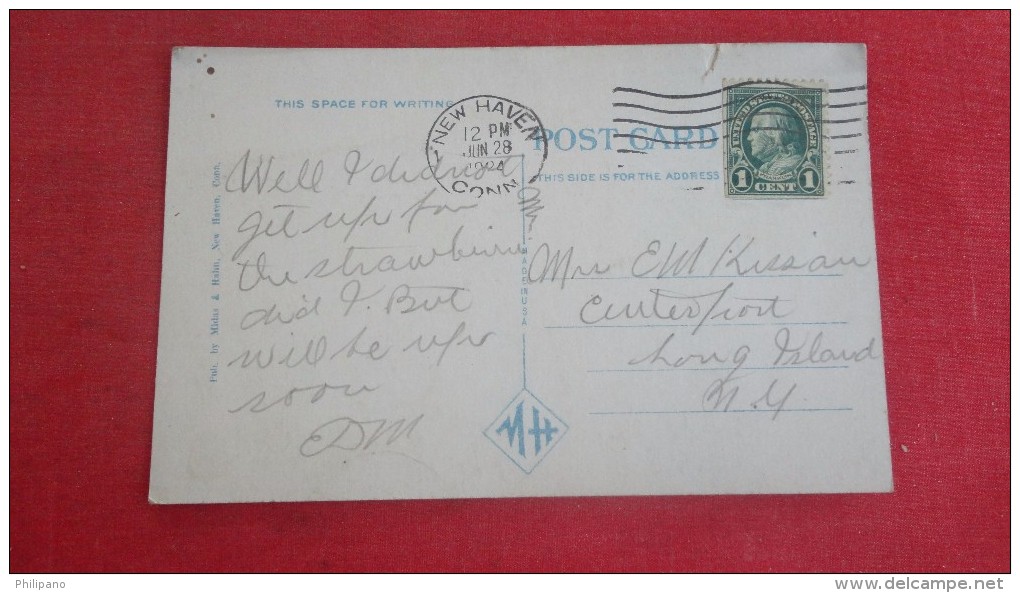 THIS SPACE FOR WRITING
NEW HAVEN
12 PM
JUN 28
1924
CONN
POST CARD
THIS SIDE IS FOR THE ADDRESS
UNITED STATES POSTAGE
FRANKLIN
1 CENT 1
Well I did not
get up for
the strawberries
did I. But
will be up
soon
EDM
Mrs EM Kissam
Centerport
Long Island
N.Y.
Pub. by Midas & Hahn, New Haven, Conn.
MADE IN USA
MH
Philipano
http://www.delcampe.net